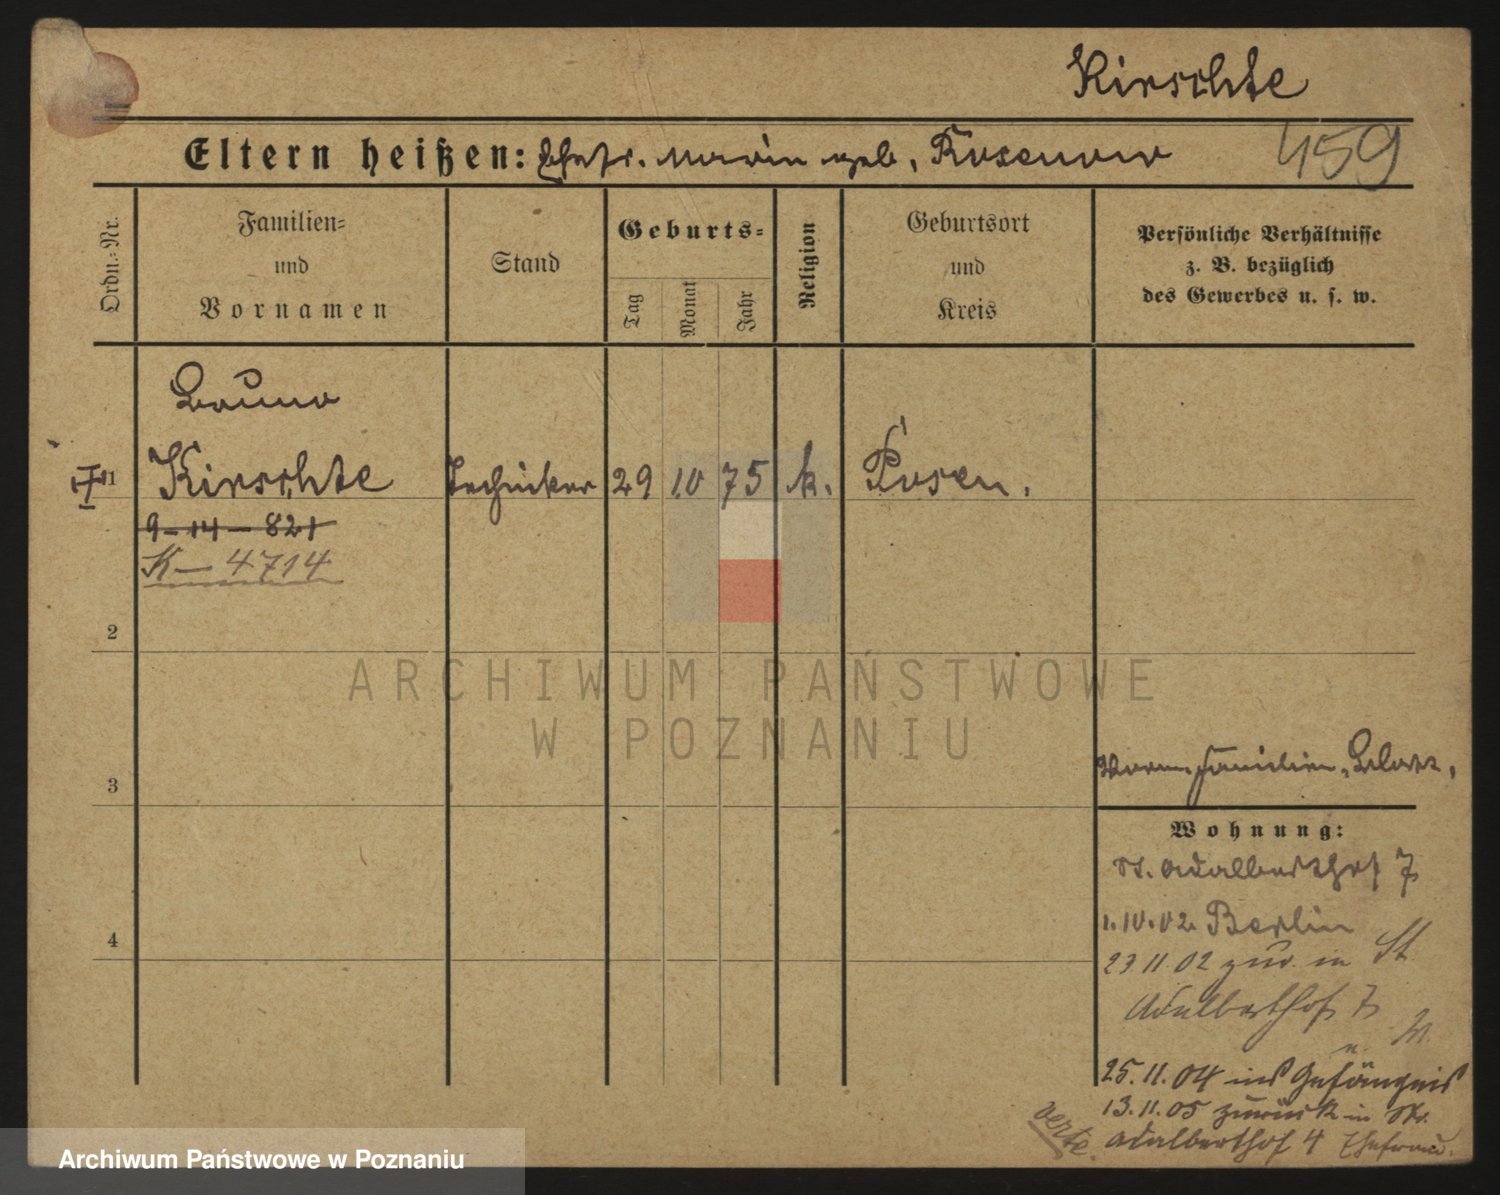 Kirschte
Eltern heißen: Marie geb. Rosenow 459
Ordn.-Nr.
Familien-
und
Vornamen
Stand
Geburts-
Tag
Monat
Jahr
Religion
Geburtsort
und
Kreis
Persönliche Verhältnisse
z. B. bezüglich
des Gewerbes u. s. w.
Bruno
1 Kirschte Techniker 29 10 75 k. Posen.
9-14-821
K-4714
2
ARCHIWUM PAŃSTWOWE
W POZNANIU
3
Familien
Wohnung:
St. Adalberthof 7
1.10.02 Berlin
23 11.02 zur. in St
Adalberthof 7
25.11.04 ins Gefängnis
13.11.05 zurück in St.
Adalberthof 4 Ehefrau.
verte.
4
Archiwum Państwowe w Poznaniu